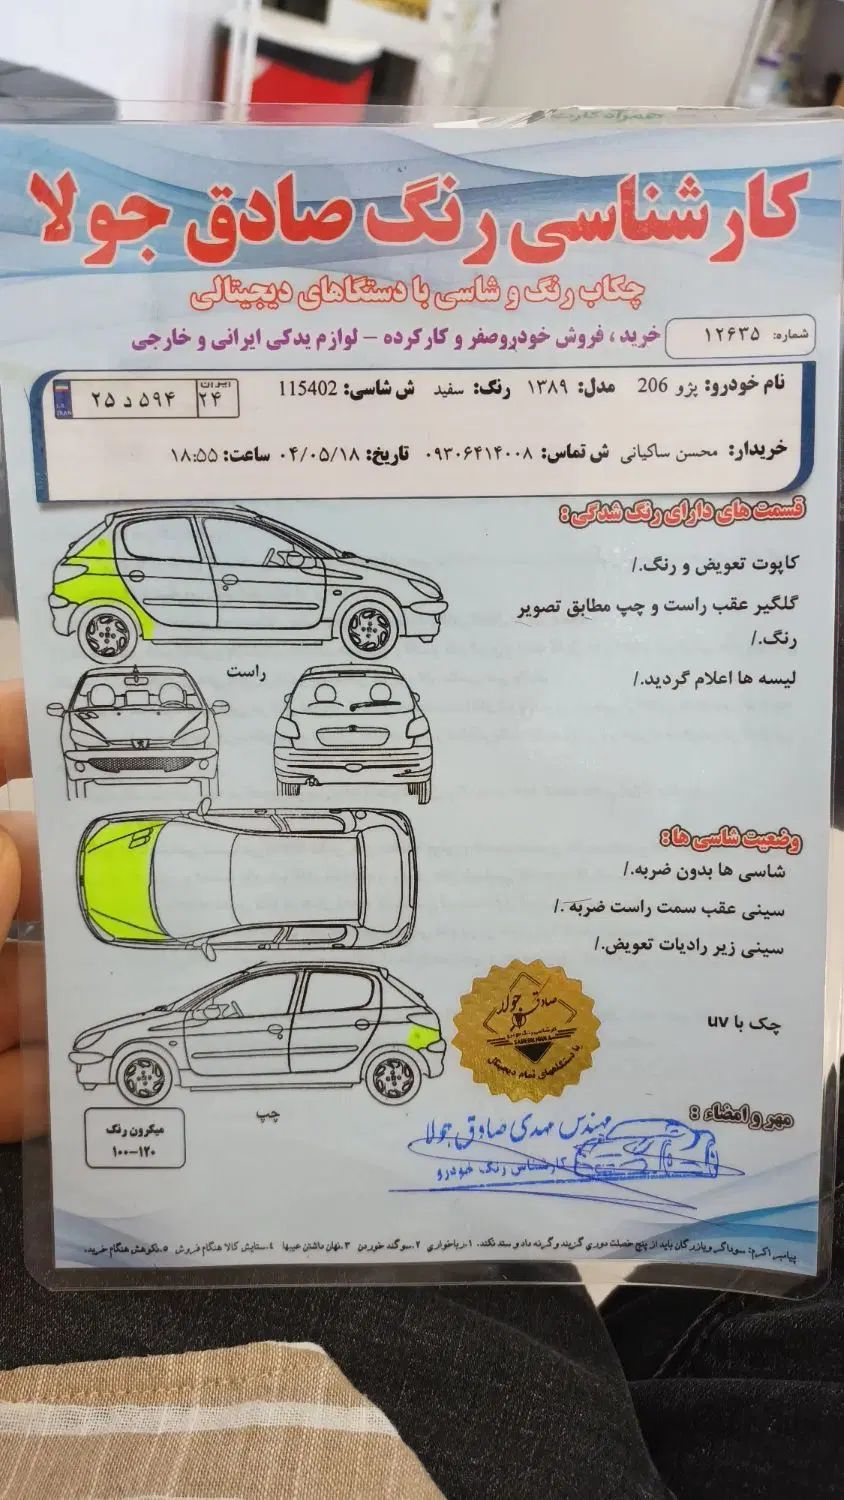 همراه کارت
کارشناسی رنگ صادق جولا
چکاب رنگ و شاسی با دستگاهای دیجیتالی
شماره: ۱۲۶۳۵
خرید، فروش خودروصفر و کارکرده - لوازم یدکی ایرانی و خارجی
نام خودرو: پژو 206 مدل: ۱۳۸۹ رنگ: سفید ش شاسی: 115402
ایران ۲۴ ۵۹۴ د ۲۵
I.R. IRAN
خریدار: محسن ساکیانی ش تماس: ۰۹۳۰۶۴۱۴۰۰۸ تاریخ: ۰۴/۰۵/۱۸ ساعت: ۱۸:۵۵
قسمت های دارای رنگ شدگی:
کاپوت تعویض و رنگ./
گلگیر عقب راست و چپ مطابق تصویر
رنگ./
لیسه ها اعلام گردید./
راست
وضعیت شاسی ها:
شاسی ها بدون ضربه./
سینی عقب سمت راست ضربه ./
سینی زیر رادیات تعویض./
چک با uv
صادق جولا
با دستگاههای تمام دیجیتال
چپ
میکرون رنگ
۱۰۰-۱۲۰
مهر و امضاء:
مهندس مهدی صادق جولا
کارشناس رنگ خودرو
پیامبر اکرم: سوداگر و بازرگان باید از پنج خصلت دوری گزیند وگرنه داد و ستد نکند. ۱.رباخواری ۲.سوگند خوردن ۳.نهان داشتن عیبها ۴.ستایش کالا هنگام فروش ۵.نکوهش هنگام خرید.